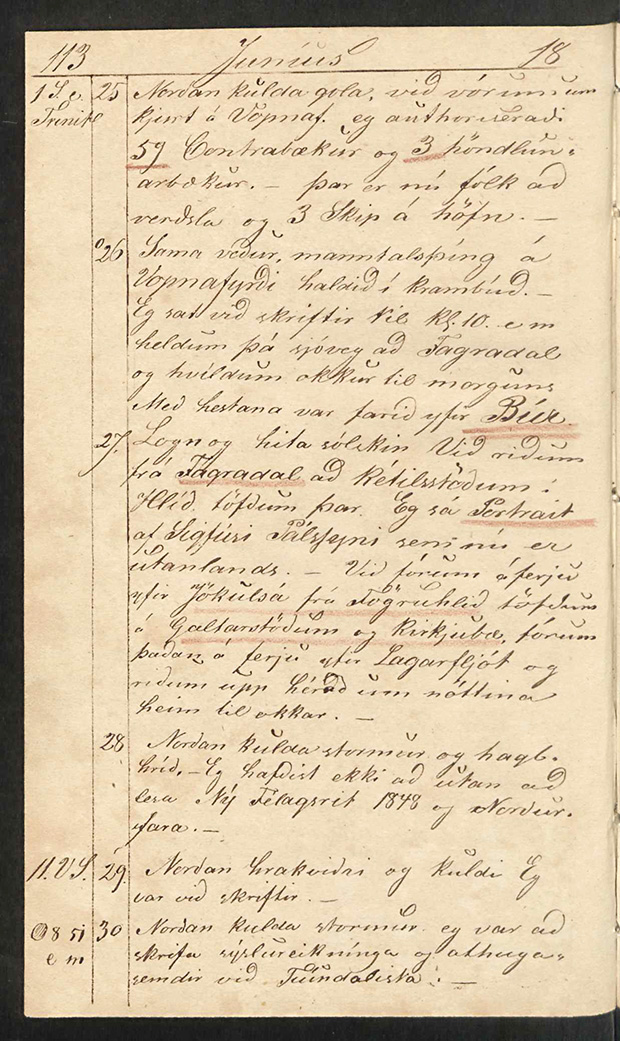 113 Junius 18
1 S. e. 25 Nordan kulda gola, vid vórum um
Trinit kjurt á Vopnaf. eg authoriseradi
59 Contrabækur og 3 höndlun-
arbækur. - þar er nú fólk ad
verdsla og 3 Skip á höfn. -
26 Sama vedur, manntalsþing á
Vopnafyrdi haldid í krambúd. -
Eg sat vid skriftir til kl. 10. e m
heldum þá sjóveg ad Fagradal
og hvíldum okkur til morguns
Med hestana var farid yfir Búr.
27. Logn og hita sólskin Vid ridum
frá Fagradal ad Ketilsstödum í
Hlíd. töfdum þar. Eg sá Portrait
af Sigfúsi Pálssyni sem nú er
utanlands. - Vid fórum á ferju
yfir Jökulsá frá Fögruhlíd töfdum
á Galtarstödum og Kirkjubæ, fórum
þadan á ferju yfir Lagarfljót og
ridum upp hérad um nóttina
heim til okkar. -
28 Nordan kulda stormur og hagl-
hríd. - Eg hafdist ekki ad utan ad
lesa Ný Félagsrit 1848 og Nordur-
fara. -
11. V S. 29. Nordan hrakvidri og kuldi Eg
var vid skriftir. -
8 51 30 Nordan kulda stormur. eg var ad
e m skrifa sýslureikninga og athuga-
semdir vid